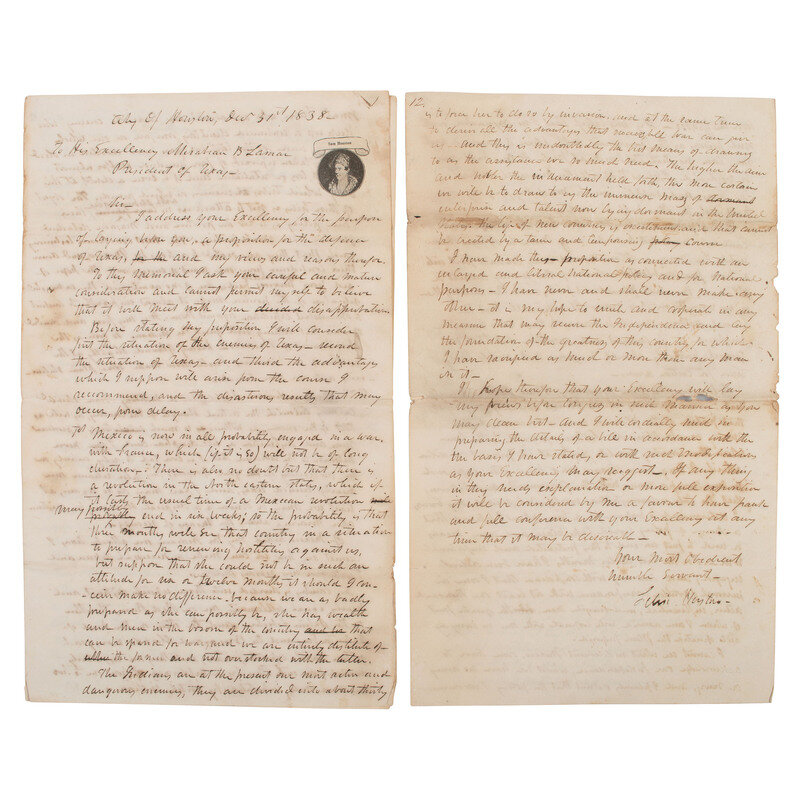 City of Houston, Dec 31st 1838
Sam Houston
To His Excellency Mirabeau B Lamar
President of Texas
Sir
I address your Excellency, for the purpose
of laying before you, a proposition for the defence
of Texas, and my views and reasons therefor.
To this memorial I ask your careful and mature
consideration and cannot permit myself to believe
that it will meet with your decided disapprobation.
Before stating my proposition I will consider
first the situation of the enemies of Texas - second
the situation of Texas - and third the advantages
which I suppose will arise from the course I
recommend, and the disastrous results that may
occur, from delay.
1st Mexico is now in all probability engaged in a war
with France, which (if it is so) will not be of long
duration - There is also no doubt but that there is
a revolution in the North eastern states, which if
it lasts the usual time of a Mexican revolution
may possibly end in six weeks; so the probability is that
three months will see that country in a situation
to prepare for renewing hostility against us,
but suppose that she could not be in such an
attitude for six or twelve months it should I con-
ceive make no difference. because we are as badly
prepared as she can possibly be, she has wealth
and men in the bosom of the country that
can be spared for war and we are entirely destitute of
the former and not overstocked with the latter.
The Indians are at the present our most active and
dangerous enemies, they are divided into about thirty
12.
is to force her to do so by invasion, and at the same time
to derive all the advantages that successful war can give
us - and this is undoubtedly the best means of drawing
to us the assistance we so much need. The higher the
and the inducement held forth, the more certain
we will be to draw to us the immense mass of
enterprise and talent now lying dormant in the United
the life of new countries is excitement and that cannot
be created by a tame and temporising course
I have made this as connected with an
enlarged and liberal National policy and for National
purposes - I have never and shall never make any
other - it is my hope to unite and cooperate in any
measure that may secure the Independence and lay
the foundation of the greatness of this country for which
I have sacrificed as much or more than any man
in it -
I hope therefore that your Excellency will lay
my views before Congress in such manner as you
may deem best - and I will cordially unite in
preparing the details of a bill in accordance with the
the basis I have stated, or with such modifications
as your Excellency may suggest. If any thing
in this needs explanation or more full exposition
it will be considered by me a favour to have frank
and full conference with your Excellency at any
time that it may be desirable -
Your Most Obedient
humble Servant -